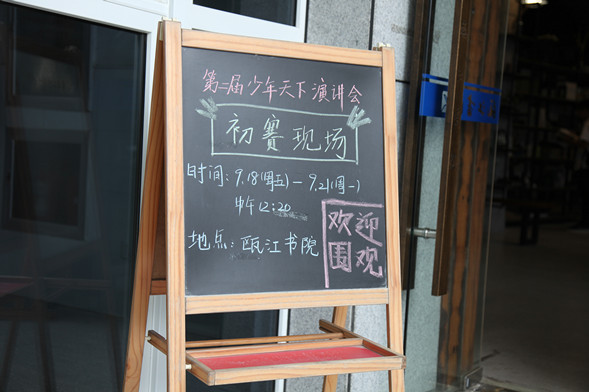 第二届少年天下演讲会
初赛现场
时间：9.18(周五)—9.21(周一)
中午12:20
地点：瓯江书院
欢迎
围观